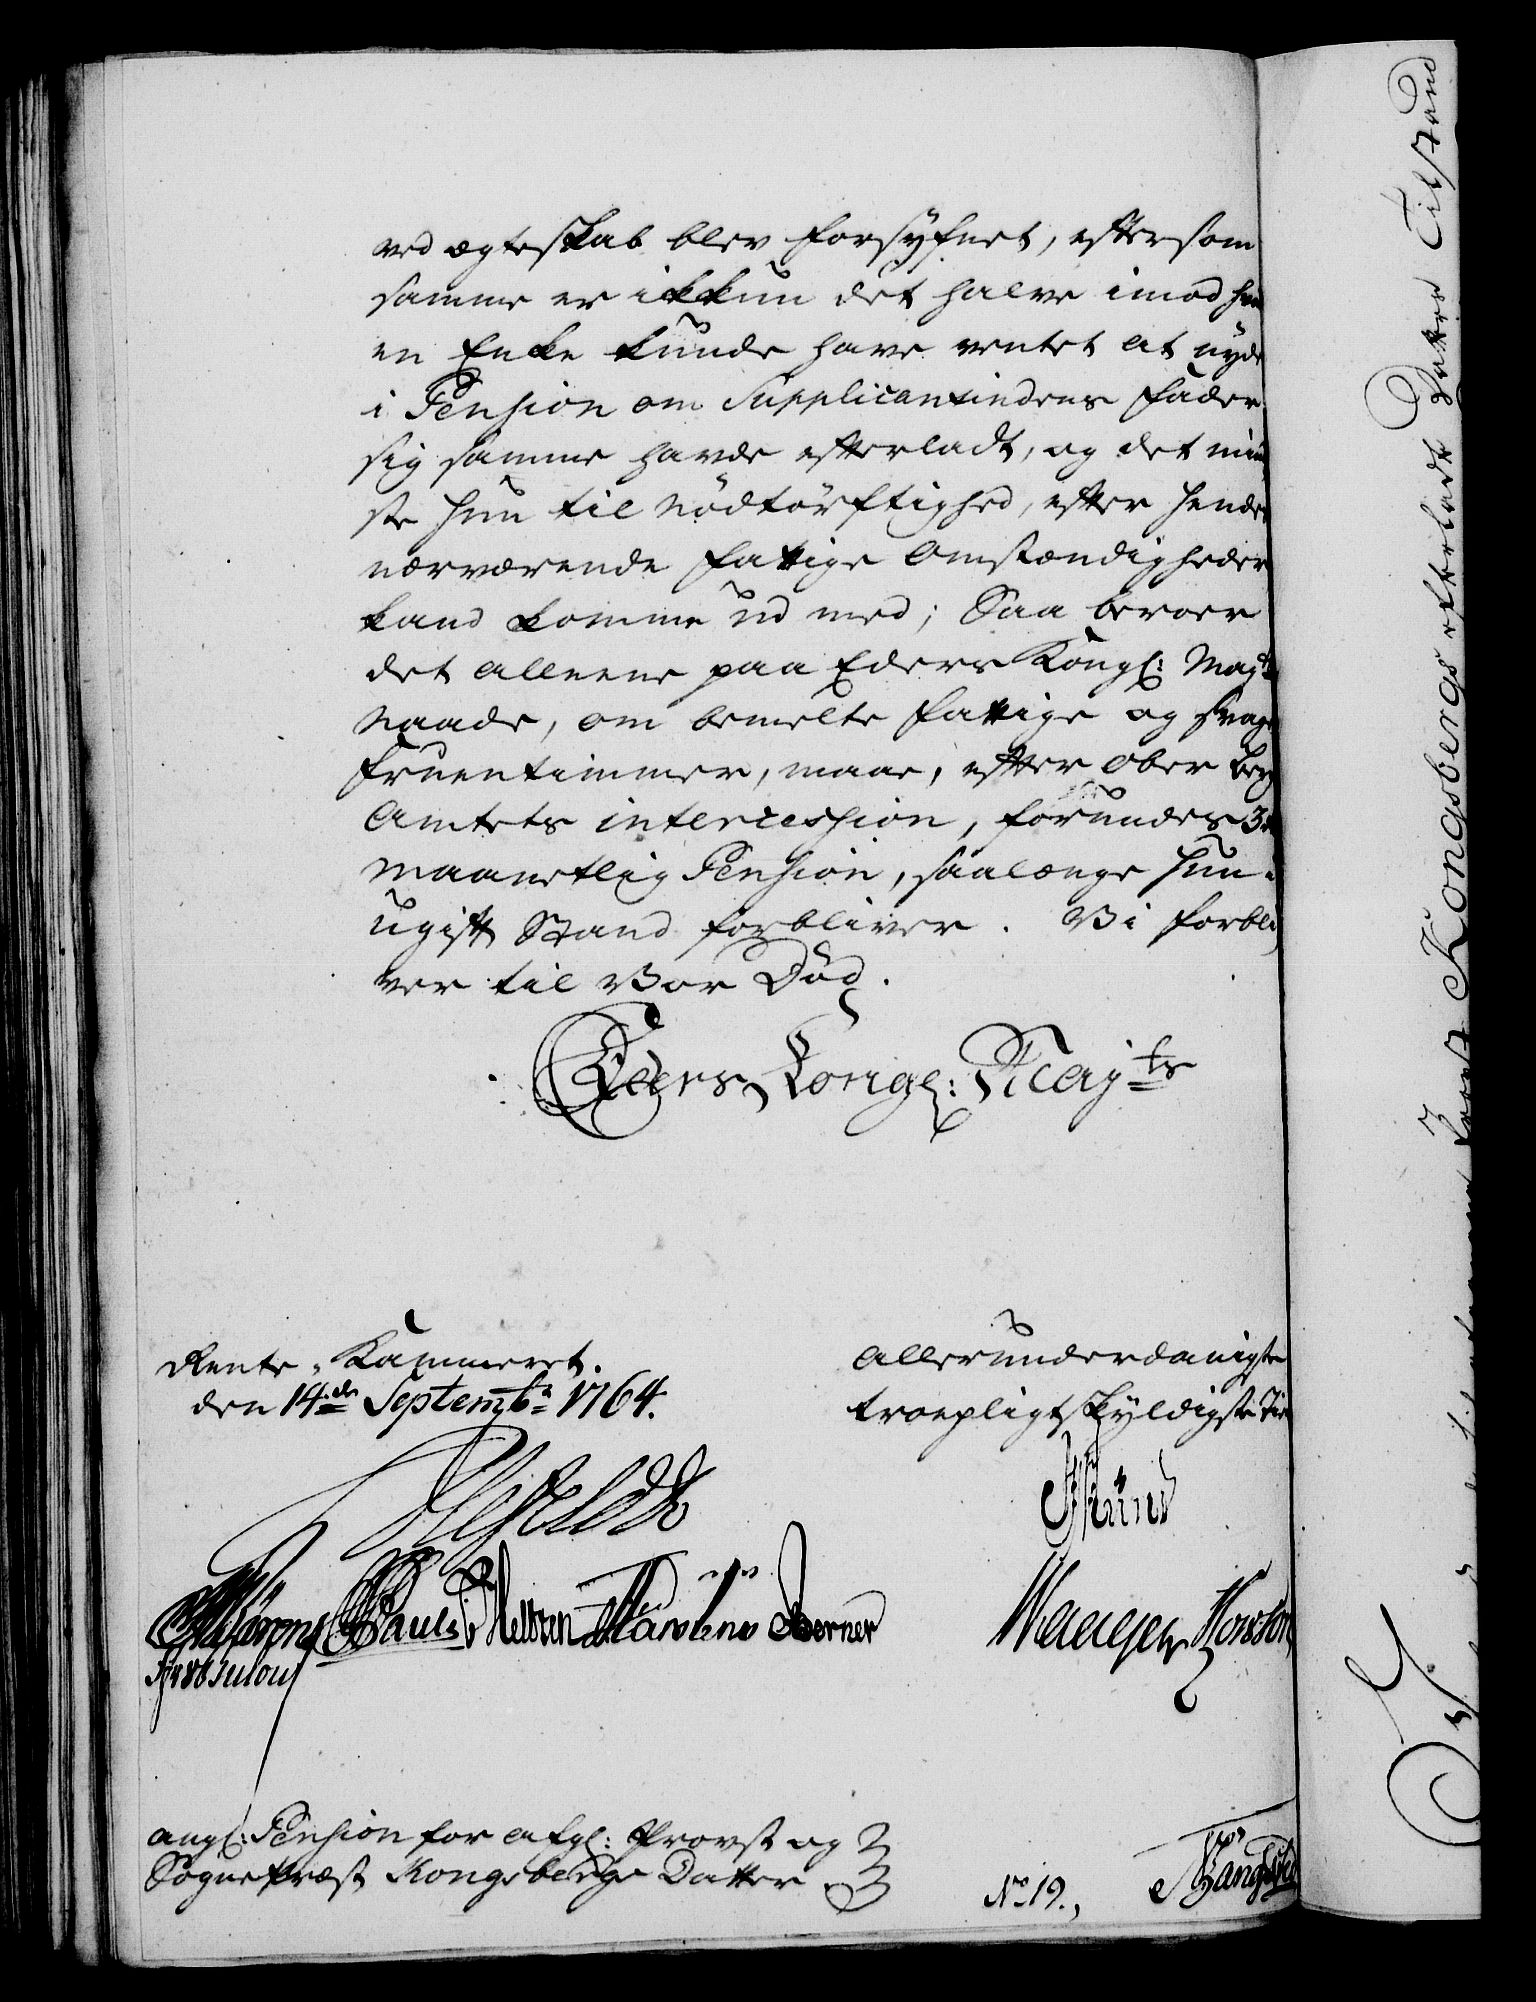 ved ægteskab blev forsÿfnet, eftersom
samme er ikkun det halve imod hva
en Enke kunde have ventet at nÿde
i Pension om Supplicantindens fader
sig samme havde efterladt, og det min
ste hun til Nödtörftighed, efter hendes
nærværende fattige Omstændigheder
kand komme ud med; Saa beroer
det alleene paa Eders Kongl: Mayts
Naade, om bemelte fattige og svage
fruentimmer, maae, efter Ober Berg
Amtets intercession, forundes 3
Maanetlig Pension, saalænge hun i
ugift Stand forbliver. Vi forbli
ver til Vor Död.
Eders Kongl: Mayts
Rente-Kammeret.
den 14de Septembr 1764.
Allerunderdanigste
troepligtskÿldigste
Paul Heltzen Mårtens Berner
ang: Pension for afg: Provst og
Sognepræst Kongsbergs Datter
No 19.,
Kongsbergs efterladte Datters Tilstand